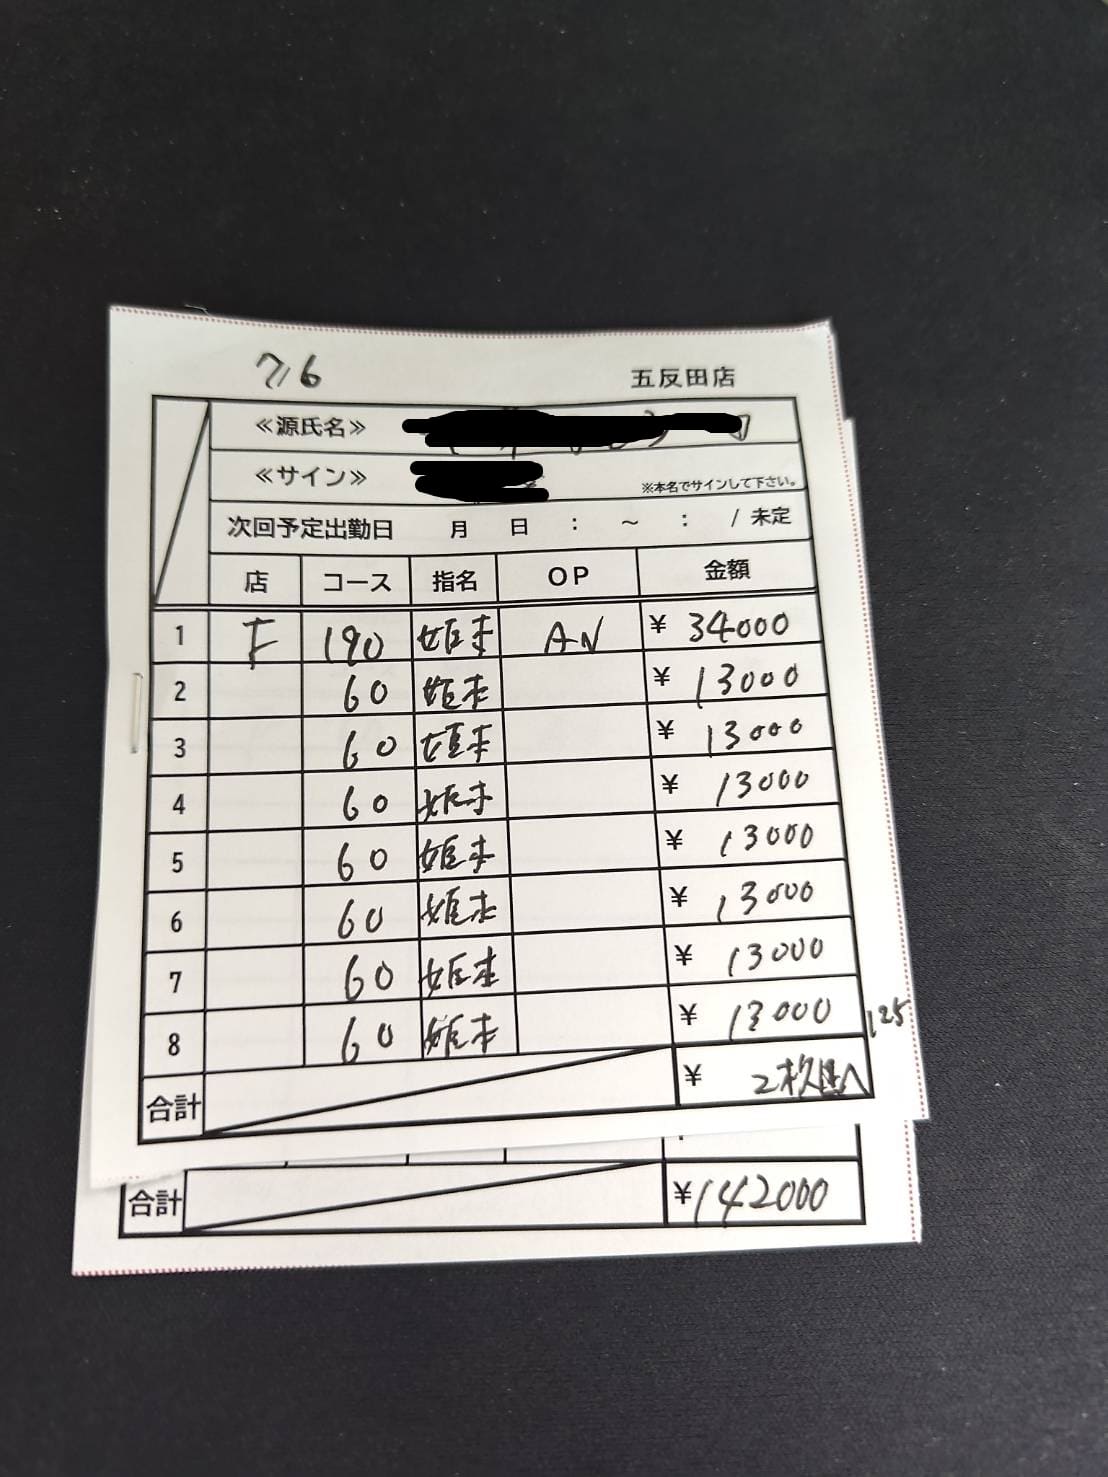 7/6 五反田店
≪源氏名≫
≪サイン≫ ※本名でサインして下さい。
次回予定出勤日 月 日 : ～ : / 未定
店 コース 指名 OP 金額
1 F 190 姫本 AN ¥ 34000
2 60 姫本 ¥ 13000
3 60 姫本 ¥ 13000
4 60 姫本 ¥ 13000
5 60 姫本 ¥ 13000
6 60 姫本 ¥ 13000
7 60 姫本 ¥ 13000
8 60 姫本 ¥ 13000
125
合計 ¥ 2枚目へ
合計 ¥142000